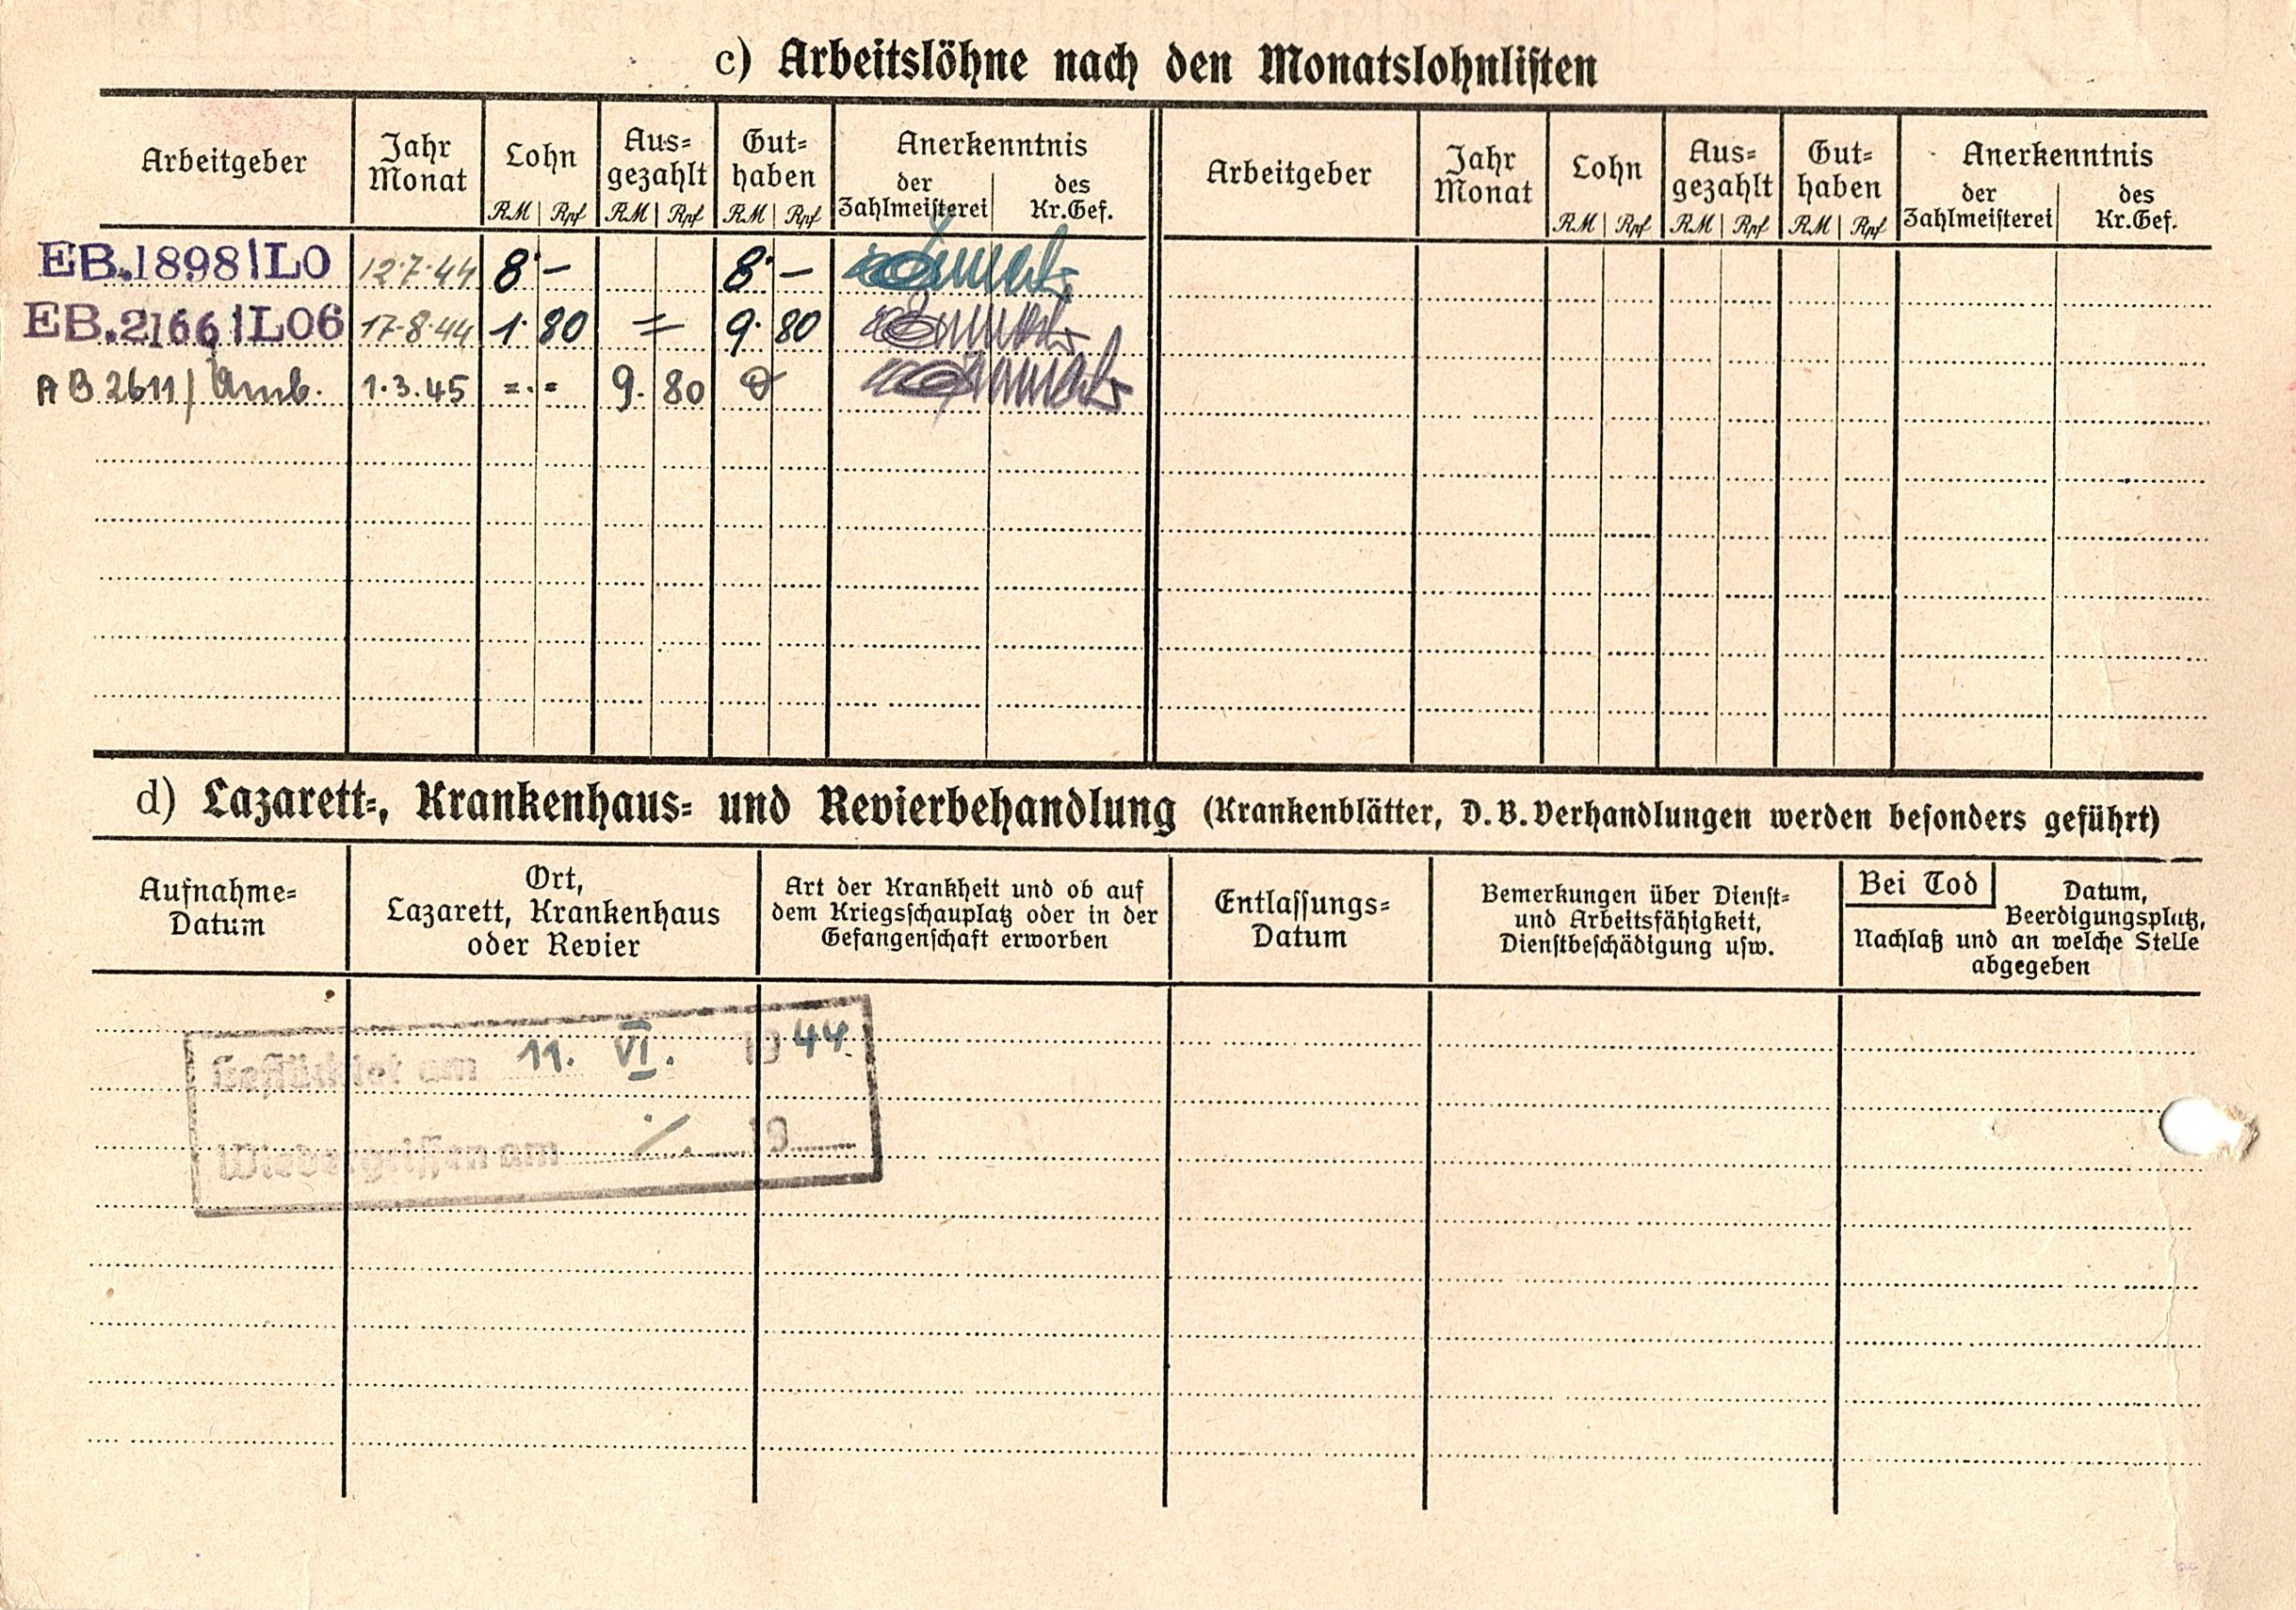 c) Arbeitslöhne nach den Monatslohnlisten
Arbeitgeber Jahr Monat Lohn Aus= gezahlt Gut= haben Anerkenntnis Arbeitgeber Jahr Monat Lohn Aus= gezahlt Gut= haben Anerkenntnis
der Zahlmeisterei des Kr.Gef. der Zahlmeisterei des Kr.Gef.
RM Rpf RM Rpf RM Rpf RM Rpf RM Rpf RM Rpf
EB.1898/LO 12.7.44 8.- 8.-
EB.2166/LO6 17.8.44 1.80 = 9.80
AB 2611/ Amb. 1.3.45 =.= 9.80 0
d) Lazarett=, Krankenhaus= und Revierbehandlung (Krankenblätter, D.B.Verhandlungen werden besonders geführt)
Aufnahme=
Datum
Ort,
Lazarett, Krankenhaus
oder Revier
Art der Krankheit und ob auf
dem Kriegsschauplatz oder in der
Gefangenschaft erworben
Entlassungs=
Datum
Bemerkungen über Dienst=
und Arbeitsfähigkeit,
Dienstbeschädigung usw.
Bei Tod Datum,
Beerdigungsplatz,
Nachlaß und an welche Stelle
abgegeben
Geflüchtet am 11. VI. 1944
Wiederergriffen am ./. 19